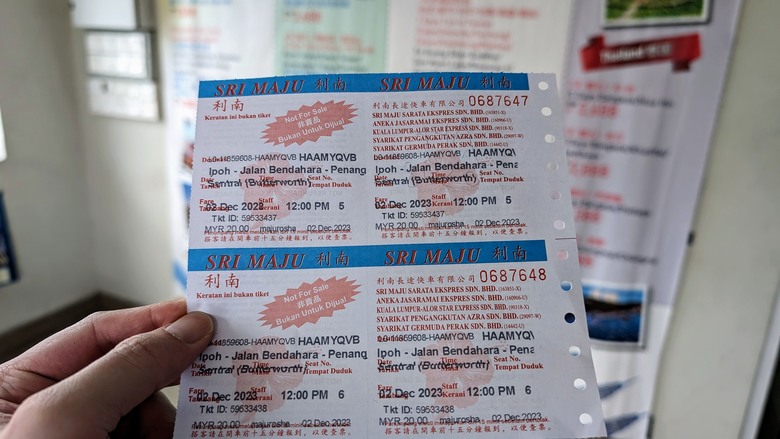 SRI MAJU 利南 SRI MAJU 利南
利南
Keratan ini bukan tiket
Not For Sale
非賣品
Bukan Untuk Dijual
利南長途快車有限公司 0687647
SRI MAJU SARATA EKSPRES SDN. BHD. (163851-X)
ANEKA JASARAMAI EKSPRES SDN. BHD. (160906-U)
KUALA LUMPUR-ALOR STAR EXPRESS SDN. BHD. (90318-X)
SYARIKAT PENGANGKUTAN AZRA SDN. BHD. (29097-W)
SYARIKAT GERMUDA PERAK SDN. BHD. (14442-U)
HAAMYQVB
Ipoh - Jalan Bendahara - Penang
Sentral (Butterworth)
Seat No.
Tempat Duduk
02 Dec 2023 12:00 PM 5
Staff
Kerani
Tkt ID: 59533437
MYR 20.00 majurosha 02 Dec 2023
搭客請在開車前十五分鐘報到，以便查票。
Ipoh - Jalan Bendahara -
Sentral (Butterworth)
Seat No.
Tempat Duduk
02 Dec 2023 12:00 PM 5
Staff
Kerani
Tkt ID: 59533437
MYR 20.00 majurosha 02 Dec 2023
SRI MAJU 利南 SRI MAJU 利南
利南
Keratan ini bukan tiket
Not For Sale
非賣品
Bukan Untuk Dijual
利南長途快車有限公司 0687648
SRI MAJU SARATA EKSPRES SDN. BHD. (163851-X)
ANEKA JASARAMAI EKSPRES SDN. BHD. (160906-U)
KUALA LUMPUR-ALOR STAR EXPRESS SDN. BHD. (90318-X)
SYARIKAT PENGANGKUTAN AZRA SDN. BHD. (29097-W)
SYARIKAT GERMUDA PERAK SDN. BHD. (14442-U)
HAAMYQVB
Ipoh - Jalan Bendahara - Penang
Sentral (Butterworth)
Seat No.
Tempat Duduk
Fare
Staff
Kerani
02 Dec 2023 12:00 PM 6
Tkt ID: 59533438
MYR 20.00 majurosha 02 Dec 2023
搭客請在開車前十五分鐘報到，以便查票。
Ipoh - Jalan Bendahara -
Sentral (Butterworth)
Seat No.
Tempat Duduk
Staff
Kerani
02 Dec 2023 12:00 PM 6
Tkt ID: 59533438
MYR 20.00 majurosha 02 Dec 2023